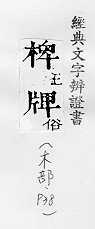 經典文字辨證書
椑
王
牌
俗
(木部·P38)